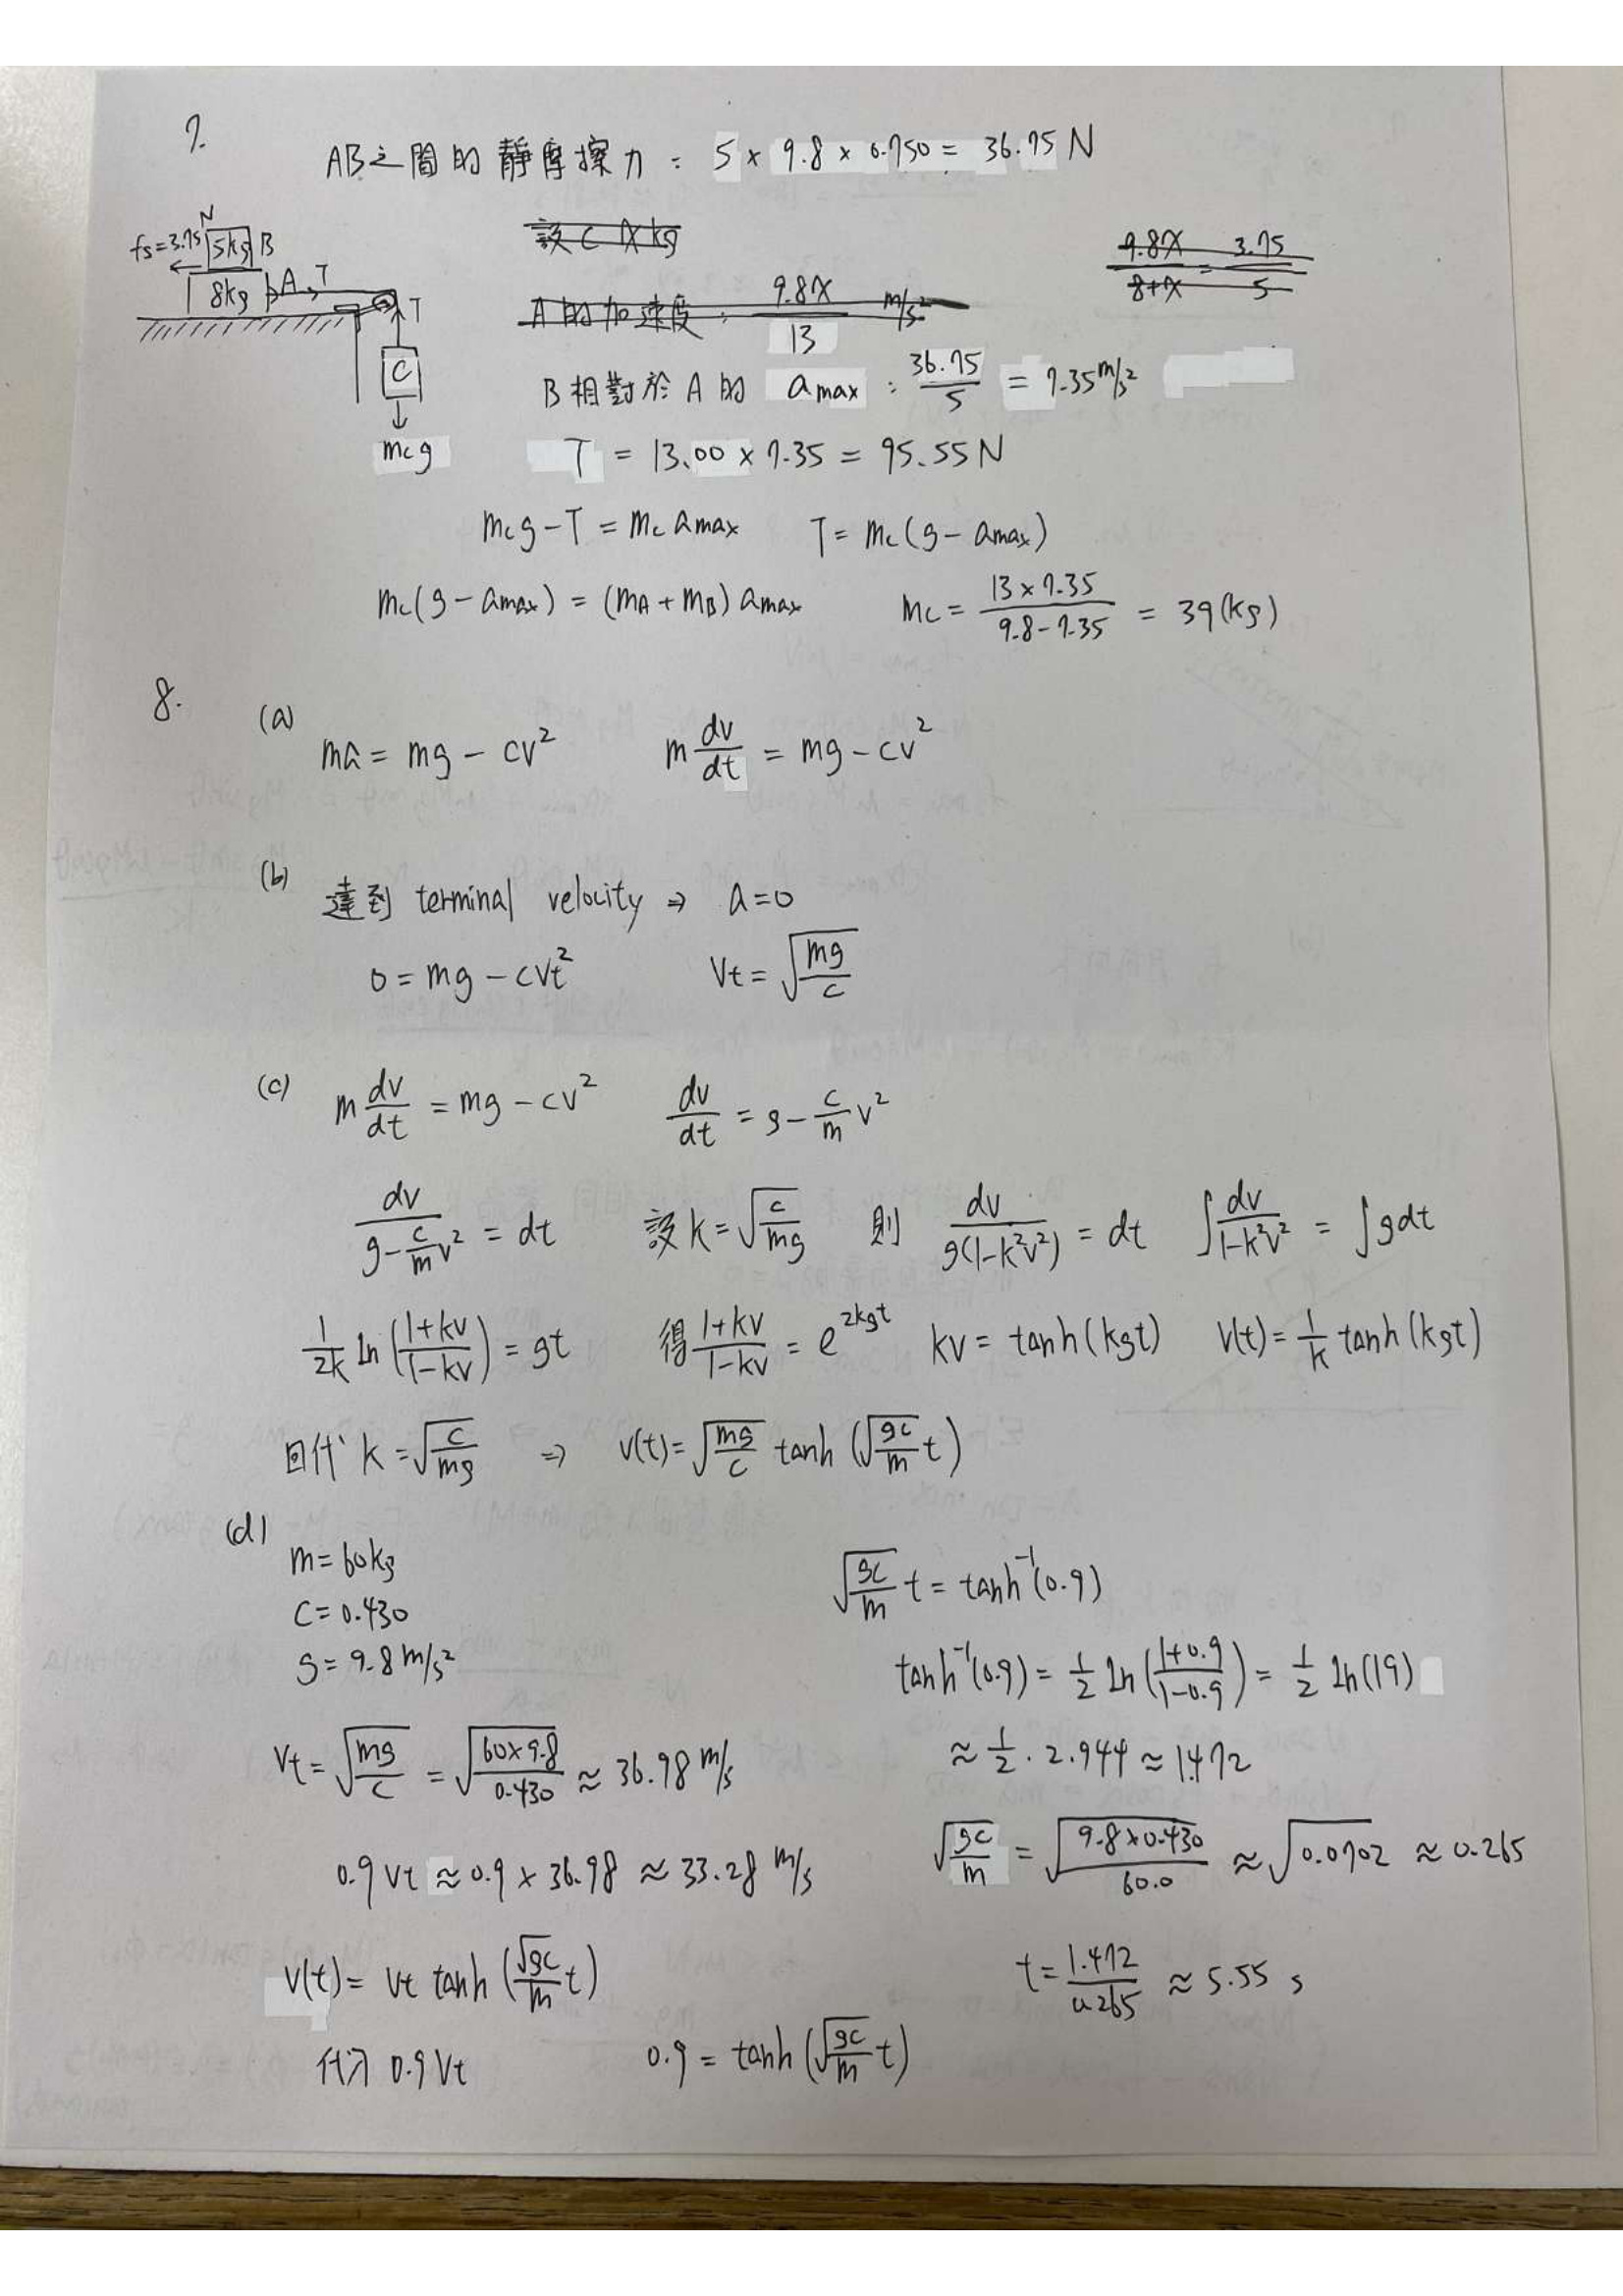 7.
AB之間的靜摩擦力：5 × 9.8 × 0.750 = 36.75 N
N
fs=3.75 5kg B
8kg A T
T
C
mcg
設 C X kg
9.8X/(8+X) = 3.75/5
A的加速度：9.8X/13 m/s²
B相對於A的 amax：36.75/5 = 7.35 m/s²
T = 13.00 × 7.35 = 95.55 N
mcg − T = mc amax T = mc(g − amax)
mc(g − amax) = (mA + mB) amax mc = (13 × 7.35)/(9.8 − 7.35) = 39 (kg)
8.
(a)
ma = mg − cv² m dv/dt = mg − cv²
(b)
達到 terminal velocity ⇒ a = 0
0 = mg − cvt² Vt = √(mg/c)
(c)
m dv/dt = mg − cv² dv/dt = g − (c/m)v²
dv/(g − (c/m)v²) = dt 設 k = √(c/mg) 則 dv/(g(1−k²v²)) = dt ∫dv/(1−k²v²) = ∫gdt
1/2k ln((1+kv)/(1−kv)) = gt 得 (1+kv)/(1−kv) = e^(2kgt) kv = tanh(kgt) V(t) = 1/k tanh(kgt)
回代 k = √(c/mg) ⇒ v(t) = √(mg/c) tanh(√(gc/m) t)
(d)
m = 60kg
c = 0.430
g = 9.8 m/s²
Vt = √(mg/c) = √(60×9.8/0.430) ≈ 36.98 m/s
0.9 Vt ≈ 0.9 × 36.98 ≈ 33.28 m/s
V(t) = Vt tanh(√gc/m t)
代入 0.9 Vt 0.9 = tanh(√(gc/m) t)
√(gc/m) t = tanh⁻¹(0.9)
tanh⁻¹(0.9) = 1/2 ln((1+0.9)/(1−0.9)) = 1/2 ln(19)
≈ 1/2 · 2.944 ≈ 1.472
√(gc/m) = √(9.8×0.430/60.0) ≈ √0.0702 ≈ 0.265
t = 1.472/0.265 ≈ 5.55 s